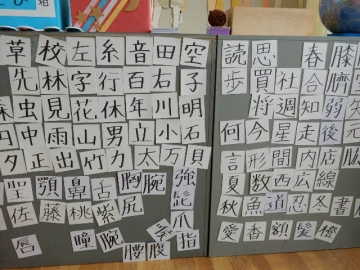 草校左糸音田空
先林字行百右子
森虫見花休年川明
円中雨山男立小石
夕正出竹力太万貝
聖顎鼻舌胸腕強
佐藤桃紫尻
爪指
唇瞳腕腰腹
読思春膝
歩買社合臍
将週知弱
何今星走後
言形間内店
夏数西広線
秋魚道忍冬書
愛香額髪